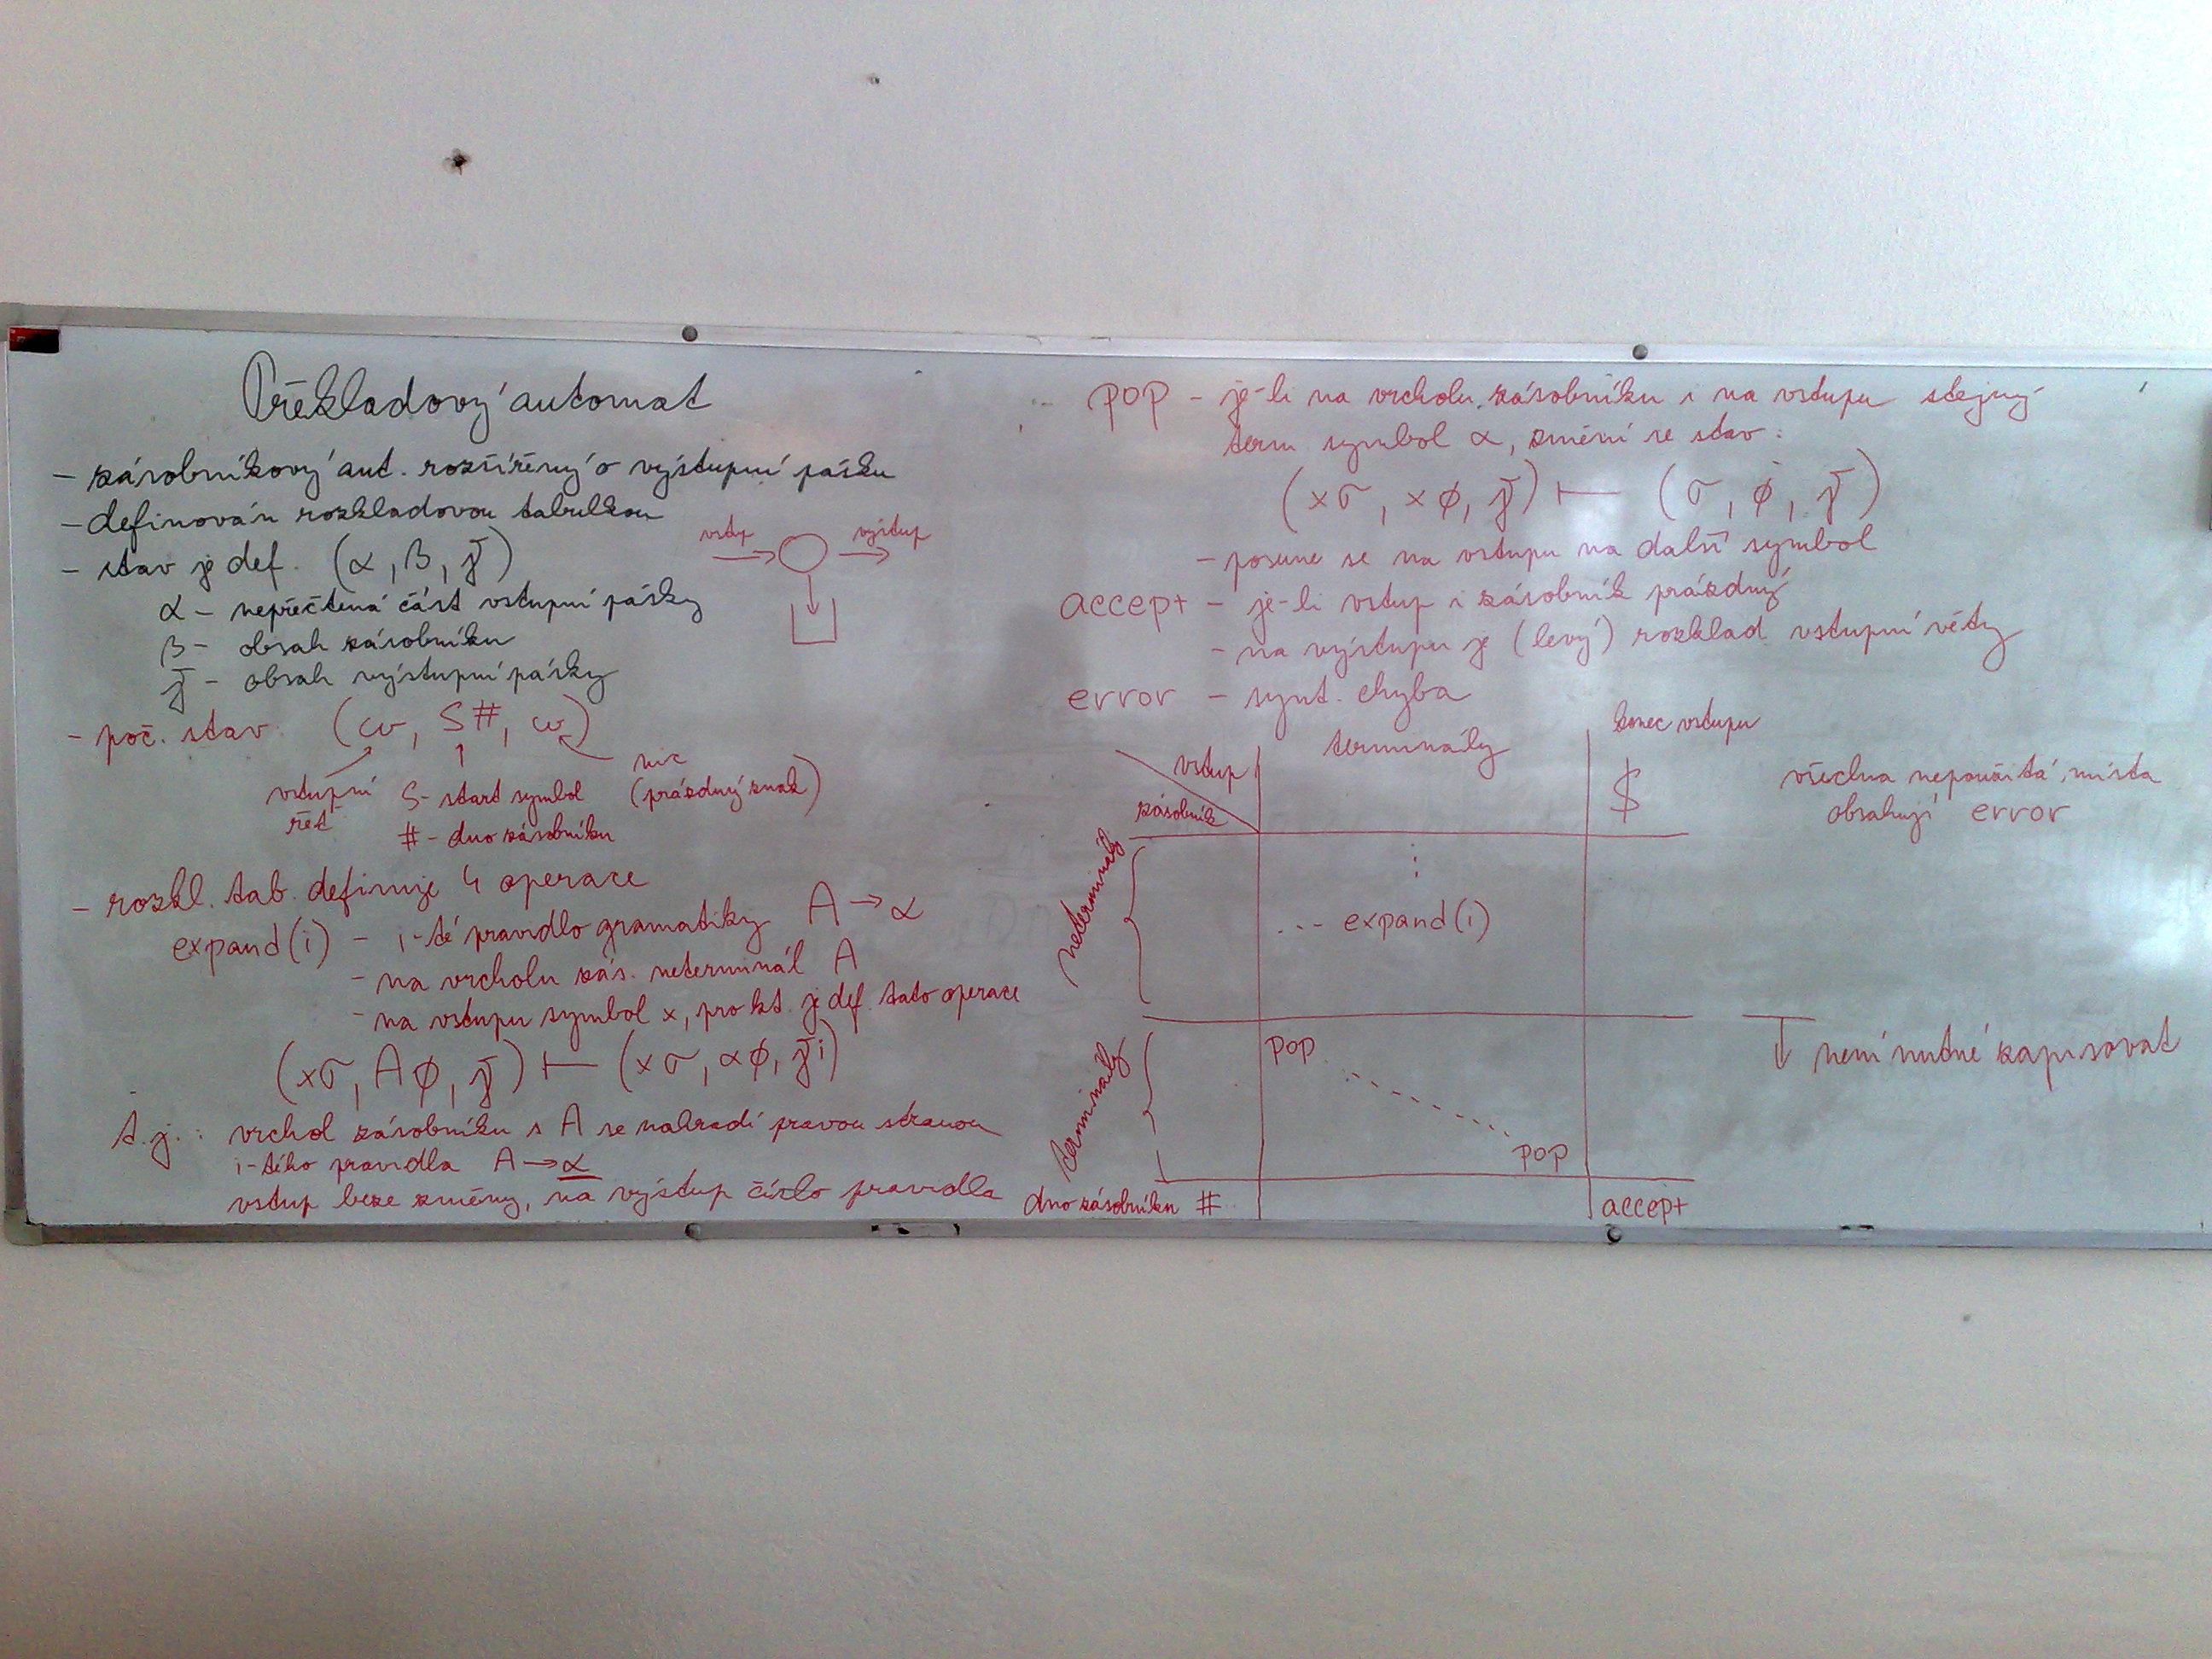 Překladový automat
- zásobníkový aut. rozšířený o výstupní pásku
- definován rozkladovou tabulkou
- stav je def. (α, β, γ)
α - nepřečtená část vstupní pásky
β - obsah zásobníku
γ - obsah výstupní pásky
vstup
výstup
- poč. stav (w, S#, w)
vstupní
řet
S - start symbol
# - dno zásobníku
nic
(prázdný znak)
- rozkl. tab. definuje 4 operace
expand(i) - i-té pravidlo gramatiky A → α
- na vrcholu zás. neterminál A
- na vstupu symbol x, pro kt. je def. tato operace
(xσ, Aϕ, γ) ⊢ (xσ, αϕ, γi)
t.j.: vrchol zásobníku s A se nahradí pravou stranou
i-tého pravidla A → α
vstup beze změny, na výstup číslo pravidla
pop - je-li na vrcholu zásobníku i na vstupu stejný
term symbol α, změní se stav:
(xσ, xϕ, γ) ⊢ (σ, ϕ, γ)
- posune se na vstupu na další symbol
accept - je-li vstup i zásobník prázdný
- na výstupu je (levý) rozklad vstupní věty
error - synt. chyba
vstup
zásobník
terminály
konec vstupu
$
všechna nepoužitá místa
obsahují error
neterminály
... expand(i)
terminály
pop
pop
není nutné zapisovat
dno zásobníku #
accept